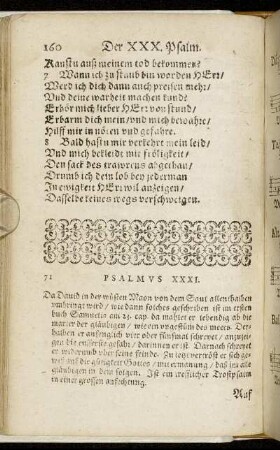 160 Der XXX. Psalm.
Kanstu auß meinem tod bekommen?
7 Wann ich zu staub bin worden HErr/
Werd ich dich dann auch preisen mehr/
Vnd deine warheit machen kund?
Erhör mich lieber HErr von stund/
Erbarm dich mein/ vnd mich bewahr/
Hilff mir in nöten vnd gefahre.
8 Bald hastu mir verkehrt mein leid/
Vnd mich bekleidt mit fröligkeit/
Den sack des trawrens abgethan/
Drumb ich dein lob bey jederman
In ewigkeit HErr wil anzeigen/
Dasselbe keines wegs verschweigen.
71 PSALMVS XXXI.
Da Dauid in der wüsten Maon von dem Saul allenthalben
vmbringt ward/ wie dann solches geschriben ist im ersten
buch Samuelis am 23. cap. da mahlet er lebendig ab die
marter der gläubigen/ wie ein vngestüm des meers. Der-
halben er anfenglich vier oder fünffmal schreyet/ anzuzei-
gen die eusserste gefahr/ darinnen er ist. Darnach schreyet
er widerumb vber seine feinde. Zu letzt tröstet er sich ge-
wiß auf die gütigkeit Gottes/ mit ermanung/ daß jm alle
gläubigen in dem folgen. Ist ein trefflicher Trostpsalm
in einer grossen anfechtung.
Auf